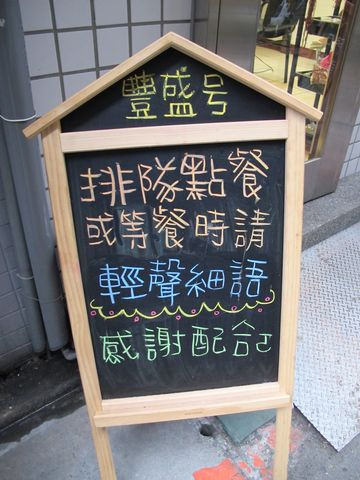 豐盛号
排隊點餐
或等餐時請
輕聲細語
感謝配合